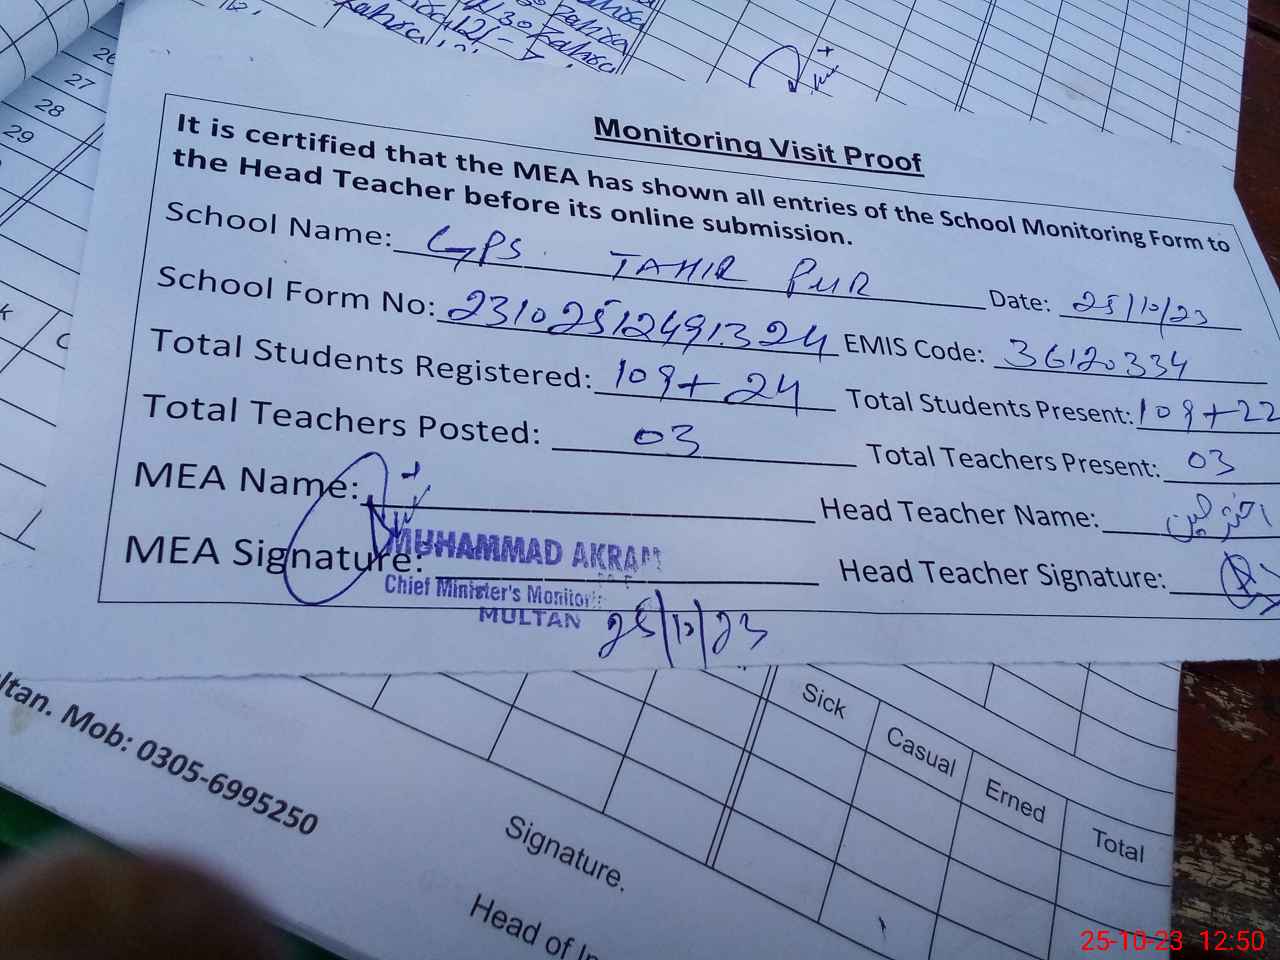 26
27
28
29
Monitoring Visit Proof
It is certified that the MEA has shown all entries of the School Monitoring Form to
the Head Teacher before its online submission.
School Name: GPS TAHIR PUR Date: 25/10/23
School Form No: 23102512491324 EMIS Code: 36120334
Total Students Registered: 109+24 Total Students Present: 109+22
Total Teachers Posted: 03 Total Teachers Present: 03
MEA Name: Head Teacher Name:
MEA Signature: Head Teacher Signature:
MUHAMMAD AKRAM
Chief Minister's Monitor
MULTAN
25/10/23
ltan. Mob: 0305-6995250
Sick Casual Erned Total
Signature.
Head of In
25-10-23 12:50